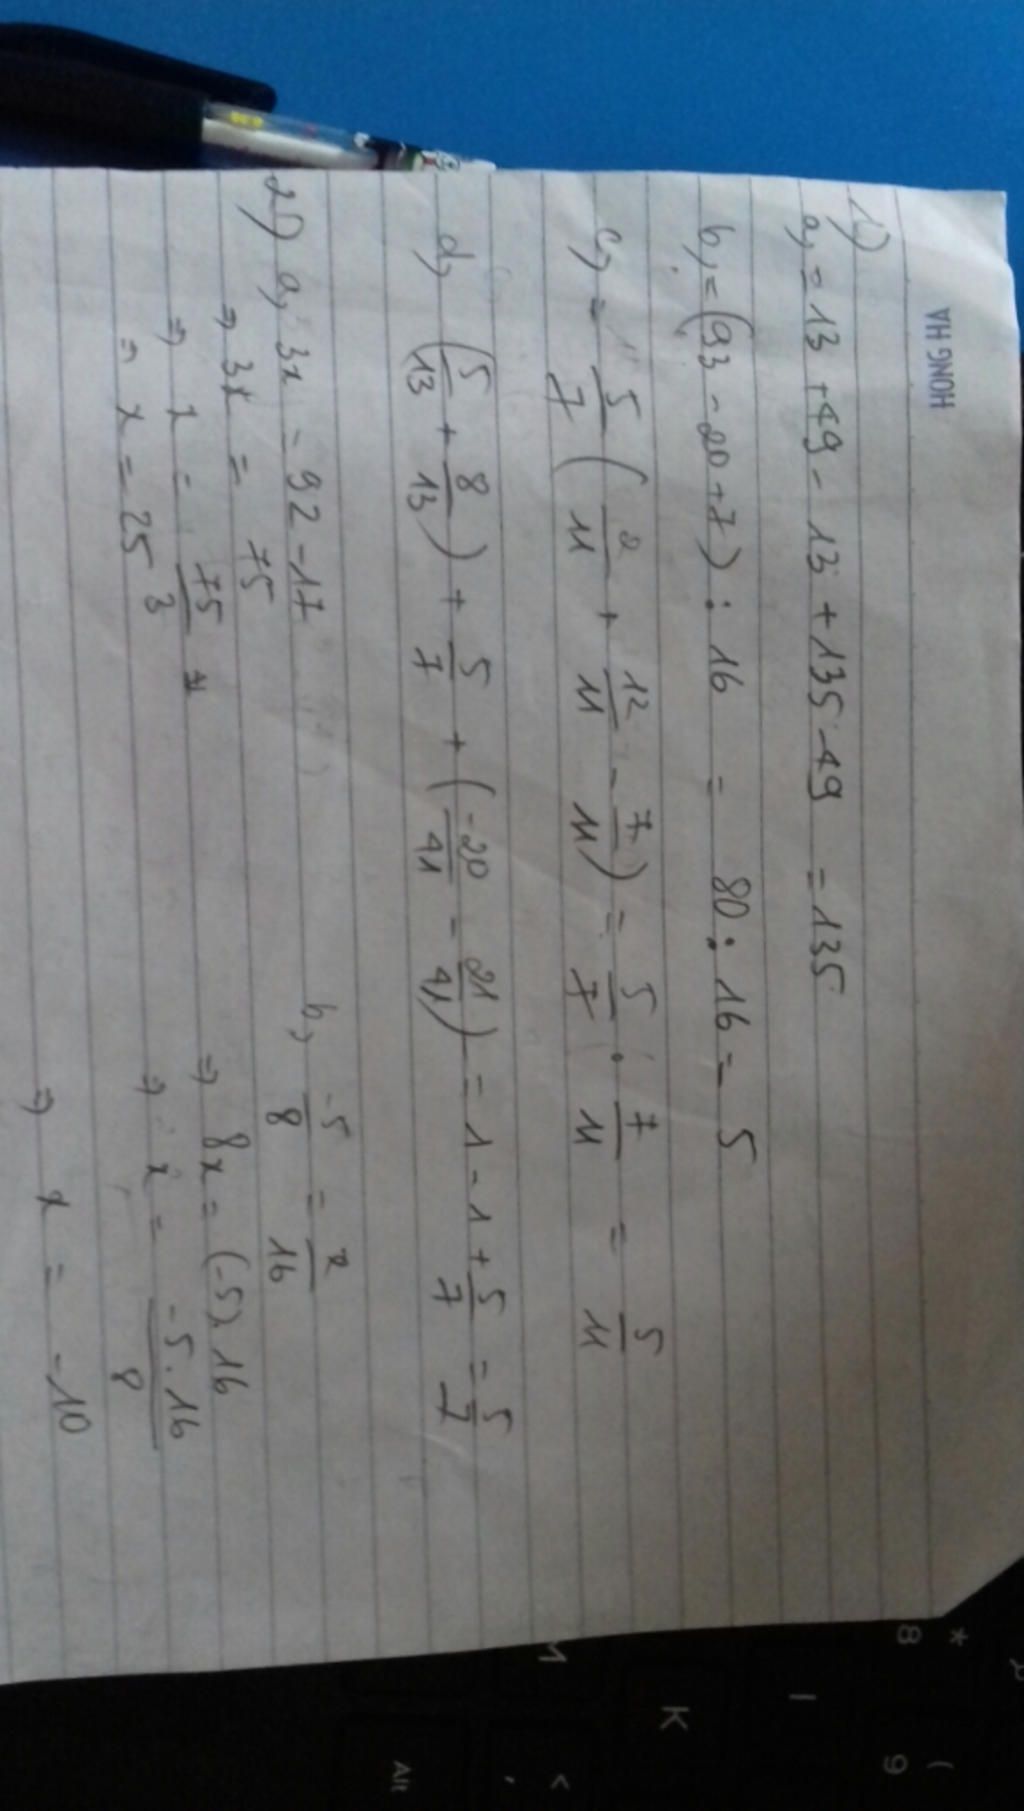 HONG HA
1)
a, = 13 + 49 - 13 + 135 - 49 = 135
b, = (93 - 20 + 7) : 16 = 80 : 16 = 5
c, = 5/7 (2/11 + 12/11 - 7/11) = 5/7 . 7/11 = 5/11
d, (5/13 + 8/13) + 5/7 + (-20/41 - 21/41) = 1 - 1 + 5/7 = 5/7
2) a, 3x = 92 - 17
⇒ 3x = 75
⇒ x = 75/3
⇒ x = 25
b, -5/8 = x/16
⇒ 8x = (-5).16
⇒ x = -5.16/8
⇒ x = -10
* 8
( 9
I
K
M
< ,
Alt